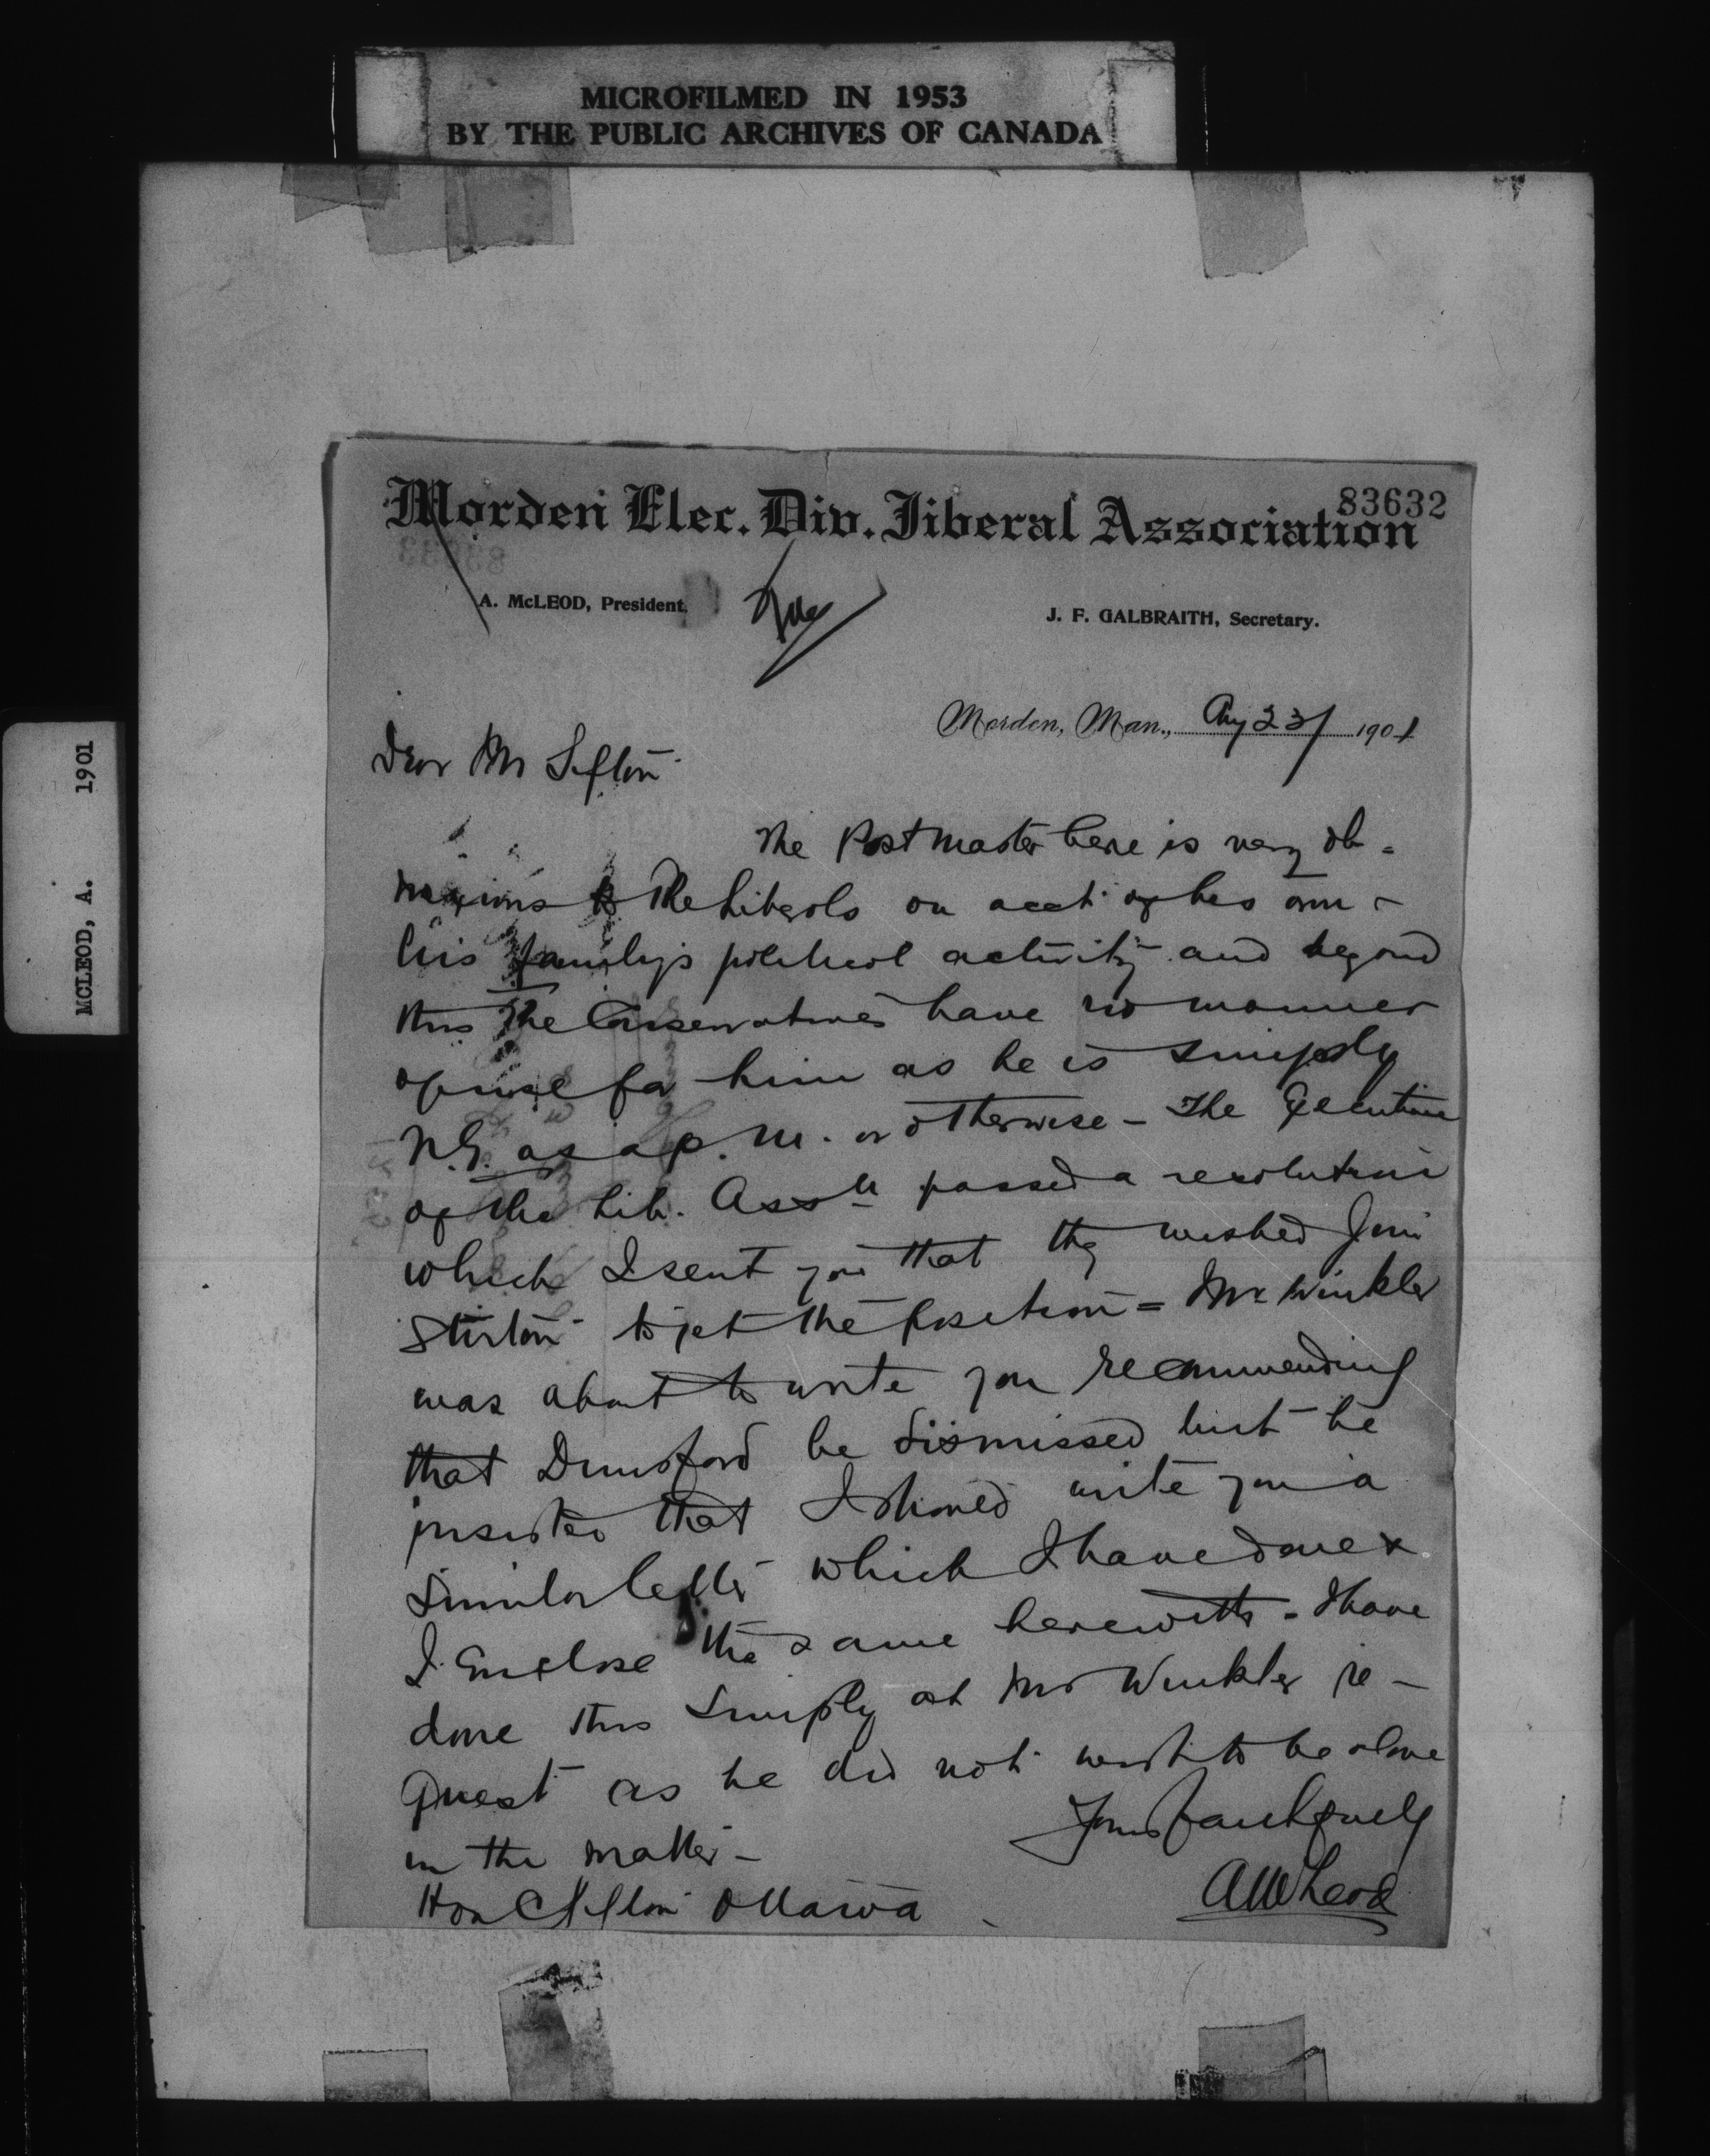 MICROFILMED IN 1953
BY THE PUBLIC ARCHIVES OF CANADA
MCLEOD, A. 1901
83632
Morden Elec. Div. Liberal Association
A. McLEOD, President.
J. F. GALBRAITH, Secretary.
Morden, Man., Aug 23/ 1901
Dear Mr Sifton
The Postmaster here is very ob-
noxious to the Liberals on acct of his own &
his family's political activity and beyond
this the Conservatives have no manner
of use for him as he is simply
N.G. as a P.M. or otherwise - The Executive
of the Lib. Assn passed a resolution
which I sent you that they wished Jim
Stirton to get the position = Mr Winkler
was about to write you recommending
that Dunsford be dismissed but he
insisted that I should write you a
similar letter which I have done &
I enclose the same herewith - I have
done this simply at Mr Winkler re-
quest as he did not wish to be alone
in the matter -
Yours faithfully
A McLeod
Hon C Sifton Ottawa